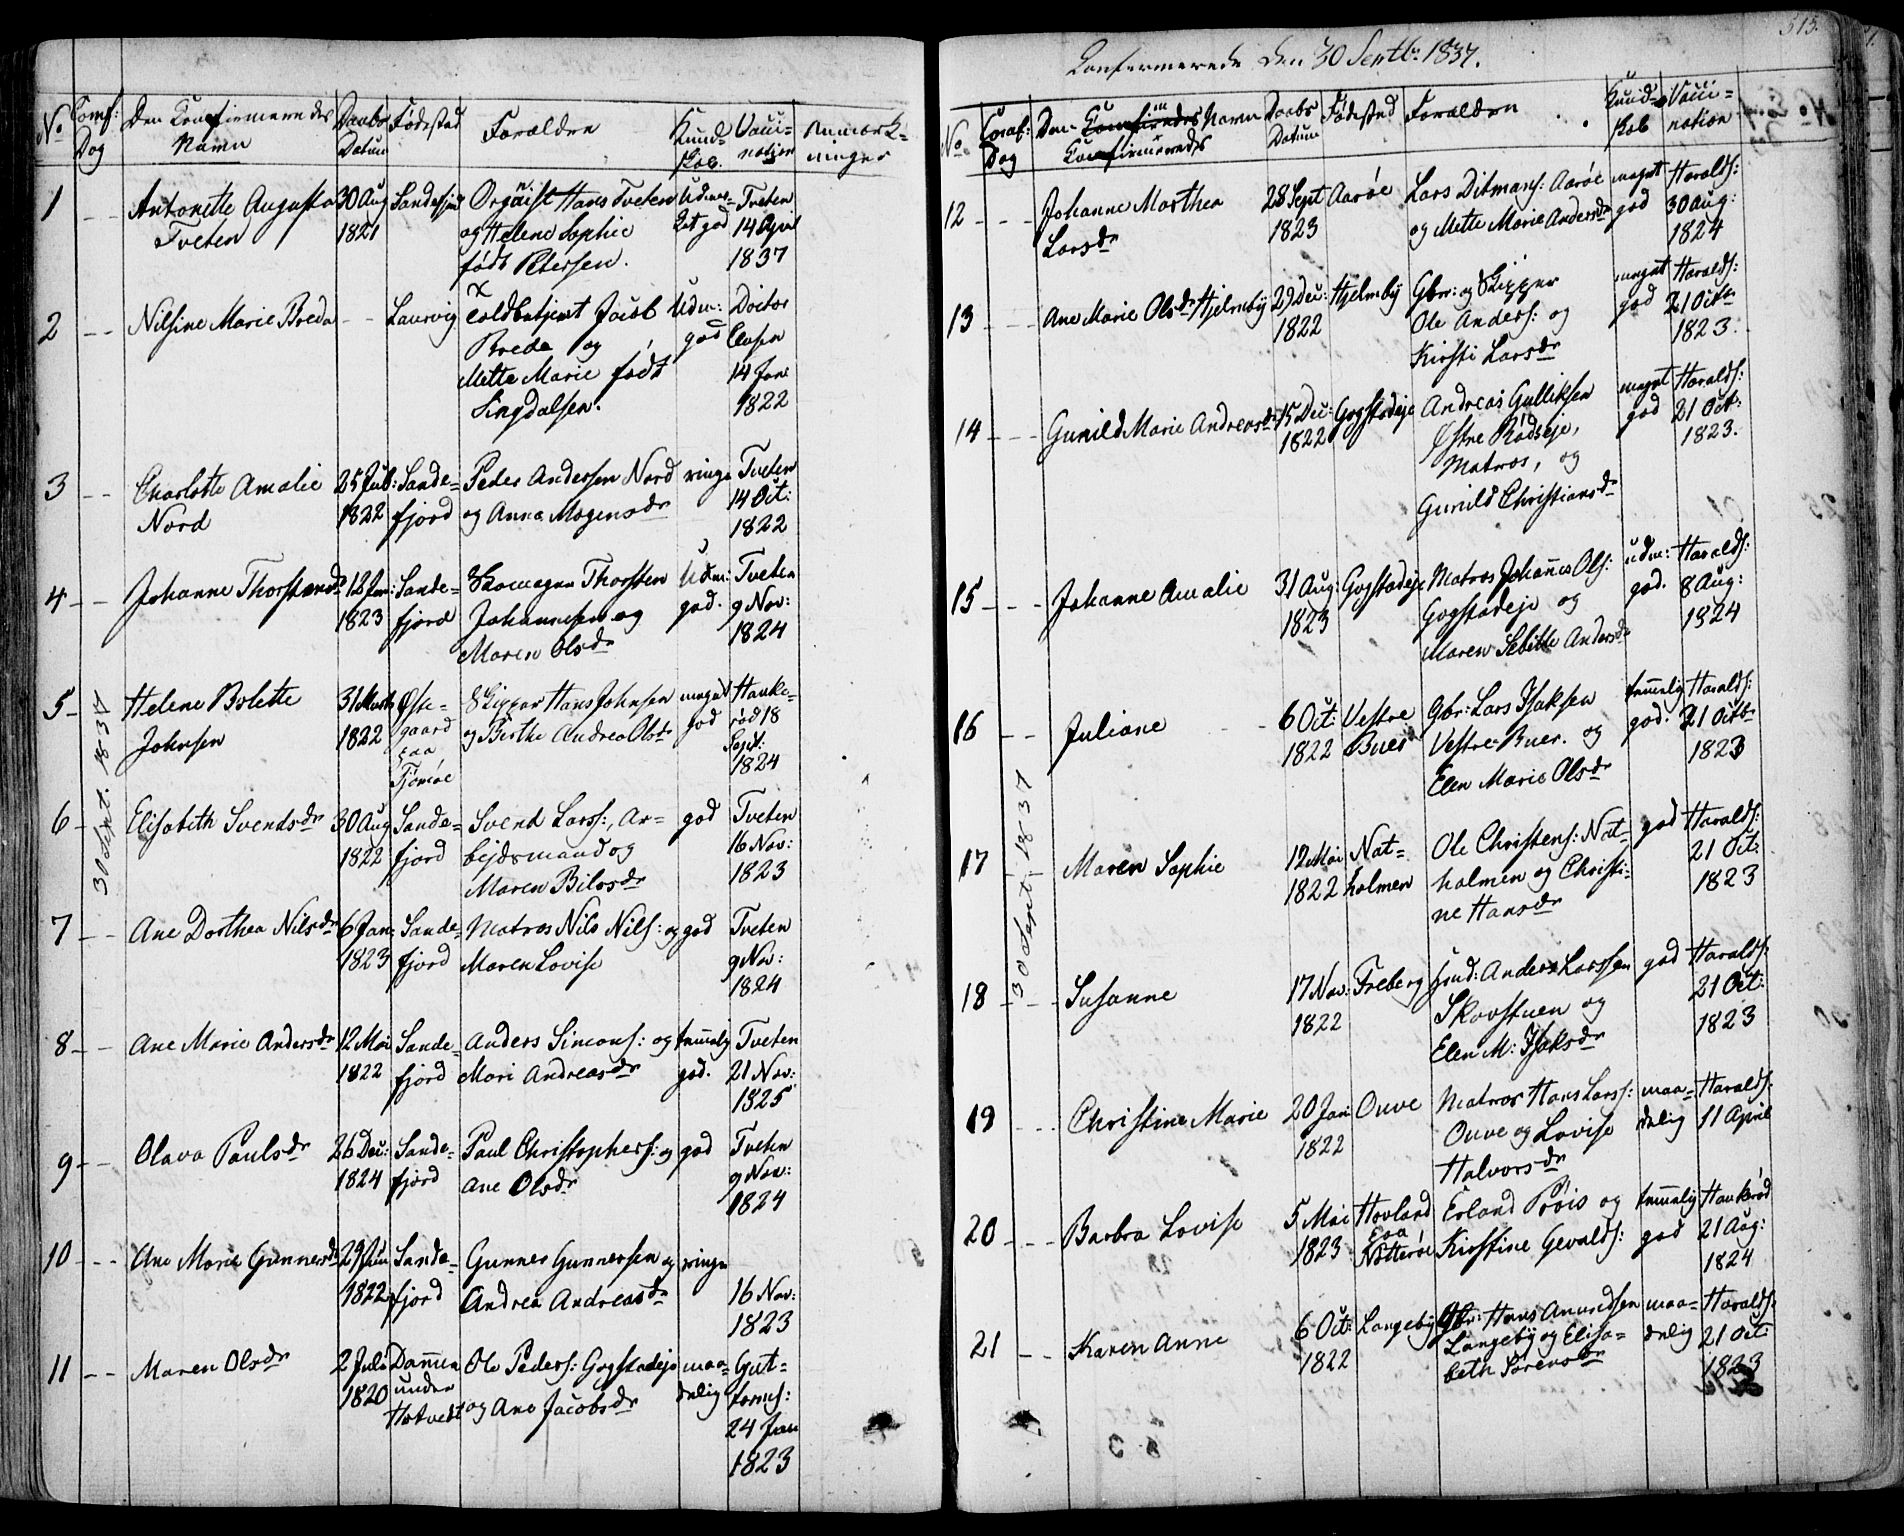 515.
Confirmerede den 30 Septbr 1837.
No Conf: Dag Den Confirmeredes Navn Daabs Datum Fødestad Forældre Kundskab. Vaccination Anmærkninger
30 Sept. 1837
1 Antonette Augusta 30 Aug Sandefjord Organist Hans Tveten Udmær- Tveten
Tveten 1821 og Helene Sophie ket god 14 April
født Petersen. 1837
2 Nilsine Marie Breda Laurvig Toldbetjent Jacob Udm: Doctor
Breda og god Clasen
Mette Marie født 14 Jan
Lingdalsen. 1822
3 Charlotte Amalie 25 Jul: Sande= Peder Andersen Nord ringe Tveten
Nord 1822 fjord og Anna Mogensdr 14 Oct:
1822
4 Johanne Thorstensdr 12 Jan: Sande= Skomager Thorsten Udm: Tveten
1823 fjord Johannesen og god. 9 Nov:
Maren Olsdr 1824
5 Helene Bolette 31 Marts Øste- Skipper Hans Johnsen meget Hauke-
Johnsen 1822 gaard og Birthe Andrea Olsdr god rød 18
paa Sept:
Tjømøe 1824
6 Elisabeth Svendsdr 30 Aug Sande= Svend Larss:, Ar= god Tveten
1822 fjord bejdsmand og 16 Nov:
Maren Nilsdr 1823
7 Ane Dorthea Nilsdr 6 Jan: Sande= Matros Nils Nils: og god Tveten
1823 fjord Maren Lovise 9 Nov:
1824
8 Ane Marie Andersdr 12 Mai Sande= Anders Simons: og temmelig Tveten
1822 fjord Mari Andreasdr god. 21 Nov:
1825
9 Olava Paulsdr 26 Dec: Sande= Paul Christophers: og god Tveten
1824 fjord Ane Olsdr 9 Nov:
1824
10 Ane Marie Gunnersdr 29 Jun Sande= Gunner Gunnersen og ringe
1822 fjord Andrea Andreasdr 16 Nov:
1823
11 Maren Olsdr 2 Juli Dammen Ole Peders: Gogstadeje maa= Gut=
1820 under og Ane Jacobsdr delig torms:
Hotvedt 24 Jan
1823
No Conf: Dag Den Confiredes Navn Confirmeredes Daabs Datum Fødested Forældre Kundskab Vaccination
30 Sept. 1837
12 Johanne Marthea 28 Sept Aarøe Lars Ditmans: Aarøe meget Haralds:
Larsdr 1823 og Mette Marie Andersdr god 30 Aug:
1824
13 Ane Marie Olsdr Hjelmby 29 Dec: Hjelmby Gbr: og Skipper meget Haralds:
1822 Ole Anders: og god 21 Octbr
Kirsti Larsdr 1823.
14 Gunild Marie Andreasdr 15 Dec: Gogstadeje Andreas Gulliksen meget Haralds:
1822 Østre Rødseje, god 21 Oct:
Matros, og 1823.
Gunild Christiansdr
15 Johanne Amalie 31 Aug: Gogstadeje Matros Johannes Ols: udm: Haralds:
1823 Gogstadeje og god. 8 Aug:
Maren Sebille Andersdr 1824
16 Juliane 6 Oct: Vestre Gbr: Lars Isaksen temmelig Haralds:
1822 Buer Vestre Buer. og god. 21 Octbr
Elen Marie Olsdr 1823
17 Maren Sophie 12 Mai Nat= Ole Christens: Nat= god Haralds:
1822 holmen holmen og Christi= 21 Oct:
ne Hansdr 1823
18 Susanne 17 Nov: Freberg Hmd: Anders Larssen god Haralds:
1822 Skovstuen og 21 Oct:
Elen M: Isaksdr 1823
19 Christine Marie 20 Jan Ouve Matros Hans Larss: maa= Haralds:
1822 Ouve og Lovise delig 11 April
Halvorsdr
20 Barbra Lovise 5 Mai Hovland Erland Prøis og temmelig Haukerød
1823 paa Kirstine Gevalds: god 21 Aug:
Nøtterøe 1824
21 Karen Anne 6 Oct: Langeby Gbr: Hans Amundsen maa= Haralds:
1822 Langeby og Elisa= delig 21 Oct:
beth Sørensdr 1823